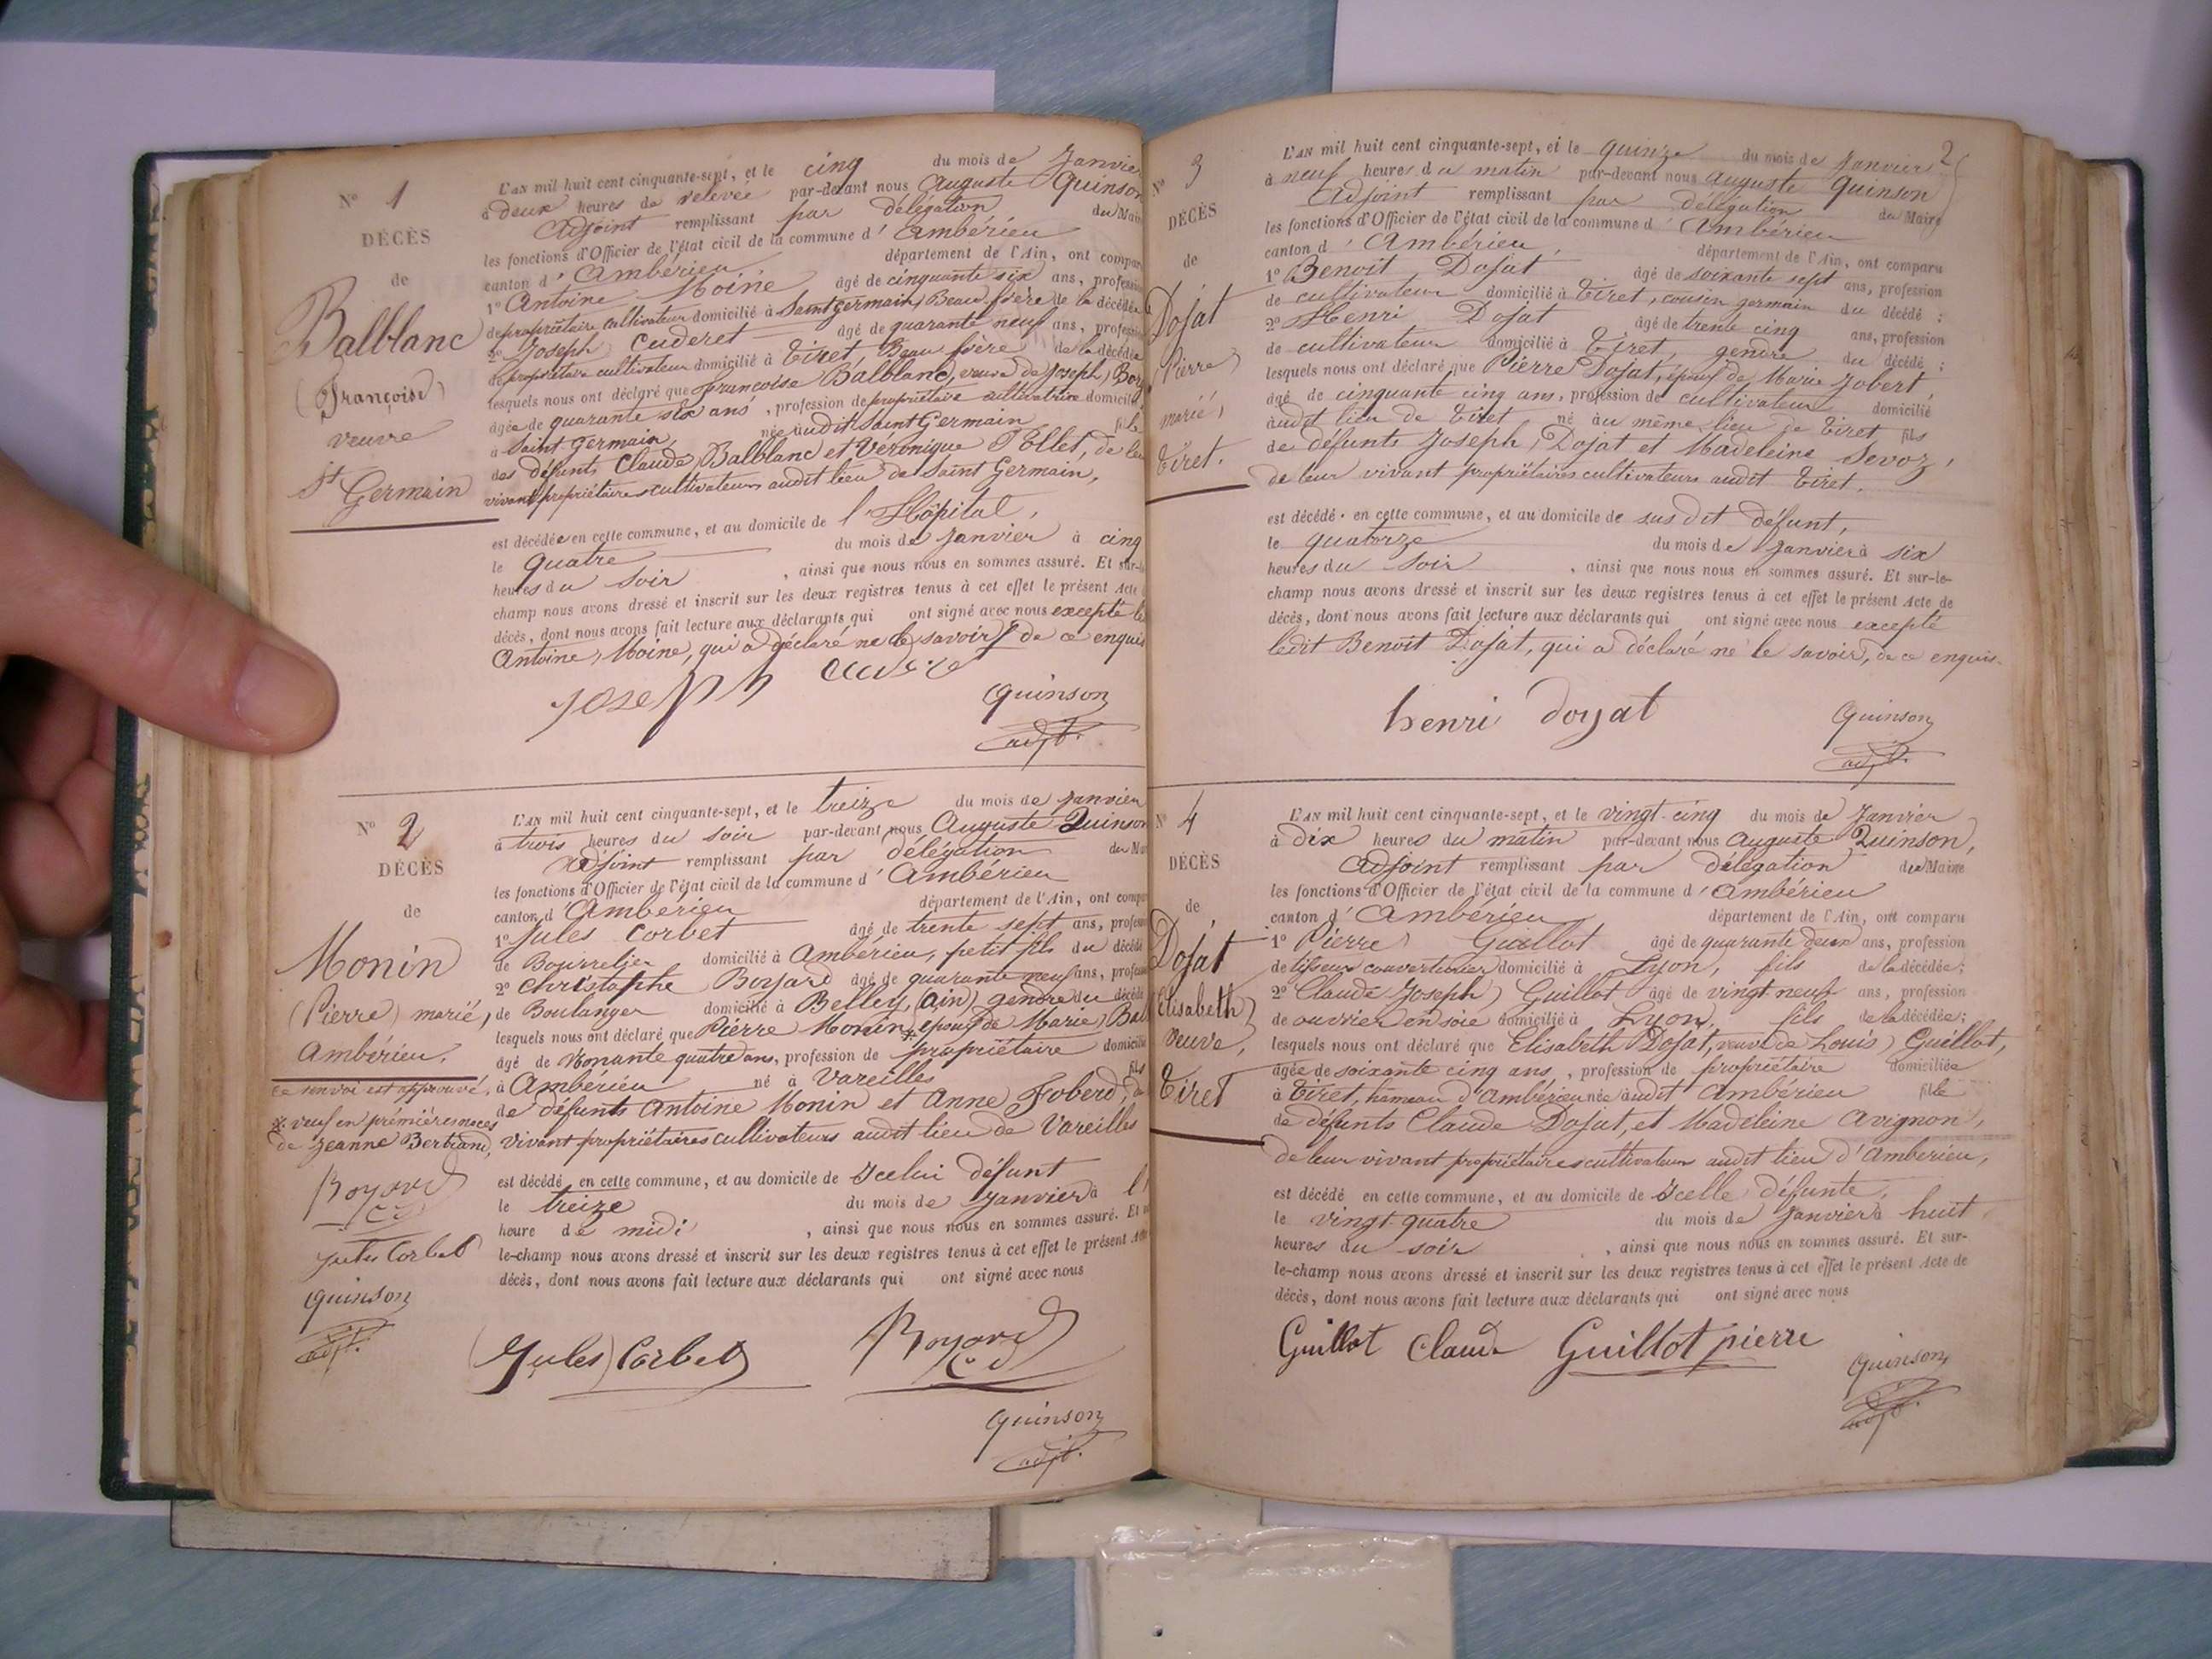 N° 1
DÉCÈS
de
Balblanc
(Françoise)
veuve
St Germain
L'AN mil huit cent cinquante-sept, et le cinq du mois de Janvier
à deux heures de relevée par-devant nous Auguste Quinson
Adjoint remplissant par délégation du Maire
les fonctions d'Officier de l'état civil de la commune d'Ambérieu
canton d'Ambérieu département de l'Ain, ont comparu
1° Antoine Moine âgé de cinquante six ans, profession
de propriétaire cultivateur domicilié à Saint Germain, Beau-frère de la décédée
2° Joseph Cuderet âgé de quarante neuf ans, profession
de propriétaire cultivateur domicilié à Tiret, Beau frère de la décédée
lesquels nous ont déclaré que Françoise Balblanc, veuve de Joseph
âgée de quarante six ans, profession de propriétaire cultivatrice domiciliée
à Saint Germain née audit Saint Germain fille
des défunts Claude Balblanc et Véronique Pollet, de leur
vivant propriétaires cultivateurs audit lieu de Saint Germain,
est décédée en cette commune, et au domicile de l'Hôpital,
le quatre du mois de Janvier à cinq
heures du soir, ainsi que nous nous en sommes assuré. Et sur-le-
champ nous avons dressé et inscrit sur les deux registres tenus à cet effet le présent Acte
décès, dont nous avons fait lecture aux déclarants qui ont signé avec nous excepté le
Antoine Moine, qui a déclaré ne le savoir de ce enquis
Joseph
Quinson
adjt.
N° 2
DÉCÈS
de
Monin
(Pierre) marié,
Ambérieu.
Ce renvoi est approuvé.
* veuf en premières noces
de Jeanne Bertrand,
Boyard
Jules Corbet
Quinson
adjt.
L'AN mil huit cent cinquante-sept, et le treize du mois de Janvier
à trois heures du soir par-devant nous Auguste Quinson
Adjoint remplissant par délégation du Maire
les fonctions d'Officier de l'état civil de la commune d'Ambérieu
canton d'Ambérieu département de l'Ain, ont comparu
1° Jules Corbet âgé de trente sept ans, profession
de Bourrelier domicilié à Ambérieu, petit fils du décédé
2° Christophe Boyard âgé de quarante neuf ans, profession
de Boulanger domicilié à Belley, (Ain) gendre du décédé
lesquels nous ont déclaré que Pierre Monin,* époux de Marie Bal
âgé de nonante quatre ans, profession de propriétaire domicilié
à Ambérieu né à Vareilles fils
de défunts Antoine Monin et Anne Joberd, de
vivant propriétaires cultivateurs audit lieu de Vareilles
est décédé en cette commune, et au domicile de Icelui défunt
le treize du mois de Janvier à l'
heure de midi, ainsi que nous nous en sommes assuré. Et
le-champ nous avons dressé et inscrit sur les deux registres tenus à cet effet le présent Acte
décès, dont nous avons fait lecture aux déclarants qui ont signé avec nous
Jules Corbet Boyard
Quinson
adjt.
2
N° 3
DÉCÈS
de
Dojat
Pierre
marié,
Tiret.
L'AN mil huit cent cinquante-sept, et le quinze du mois de Janvier
à neuf heures du matin par-devant nous Auguste Quinson
Adjoint remplissant par délégation du Maire
les fonctions d'Officier de l'état civil de la commune d'Ambérieu
canton d'Ambérieu, département de l'Ain, ont comparu
1° Benoit Dojat âgé de soixante sept ans, profession
de cultivateur domicilié à Tiret, cousin germain du décédé :
2° Henri Dojat âgé de trente cinq ans, profession
de cultivateur domicilié à Tiret, gendre du décédé ;
lesquels nous ont déclaré que Pierre Dojat, époux de Marie Jobert,
âgé de cinquante cinq ans, profession de cultivateur domicilié
audit lieu de Tiret né au même lieu de Tiret fils
de défunts Joseph Dojat et Madeleine Sevoz,
de leur vivant propriétaires cultivateurs audit Tiret.
est décédé en cette commune, et au domicile de sus dit défunt,
le quatorze du mois de Janvier à six
heures du soir, ainsi que nous nous en sommes assuré. Et sur-le-
champ nous avons dressé et inscrit sur les deux registres tenus à cet effet le présent Acte de
décès, dont nous avons fait lecture aux déclarants qui ont signé avec nous excepté
ledit Benoit Dojat, qui a déclaré ne le savoir, de ce enquis.
henri doyat
Quinson
adjt.
N° 4
DÉCÈS
de
Dojat
Elisabeth
veuve,
Tiret
L'AN mil huit cent cinquante-sept, et le vingt-cinq du mois de Janvier
à dix heures du matin par-devant nous Auguste Quinson,
Adjoint remplissant par délégation du Maire
les fonctions d'Officier de l'état civil de la commune d'Ambérieu
canton d'Ambérieu département de l'Ain, ont comparu
1° Pierre Guillot âgé de quarante deux ans, profession
de domicilié à Lyon, fils de la décédée;
2° Claude Joseph Guillot âgé de vingt neuf ans, profession
de ouvrier en soie domicilié à Lyon, fils de la décédée;
lesquels nous ont déclaré que Elisabeth Dojat, veuve de Louis Guillot,
âgée de soixante cinq ans, profession de propriétaire domiciliée
à Tiret, hameau d'Ambérieu née audit Ambérieu fille
de défunts Claude Dojat, et Madeleine Avignon,
de leur vivant propriétaires cultivateurs audit lieu d'Ambérieu,
est décédé en cette commune, et au domicile de Icelle défunte,
le vingt quatre du mois de Janvier à huit
heures du soir, ainsi que nous nous en sommes assuré. Et sur-
le-champ nous avons dressé et inscrit sur les deux registres tenus à cet effet le présent Acte de
décès, dont nous avons fait lecture aux déclarants qui ont signé avec nous
Guillot Claude Guillot pierre
Quinson
adjt.